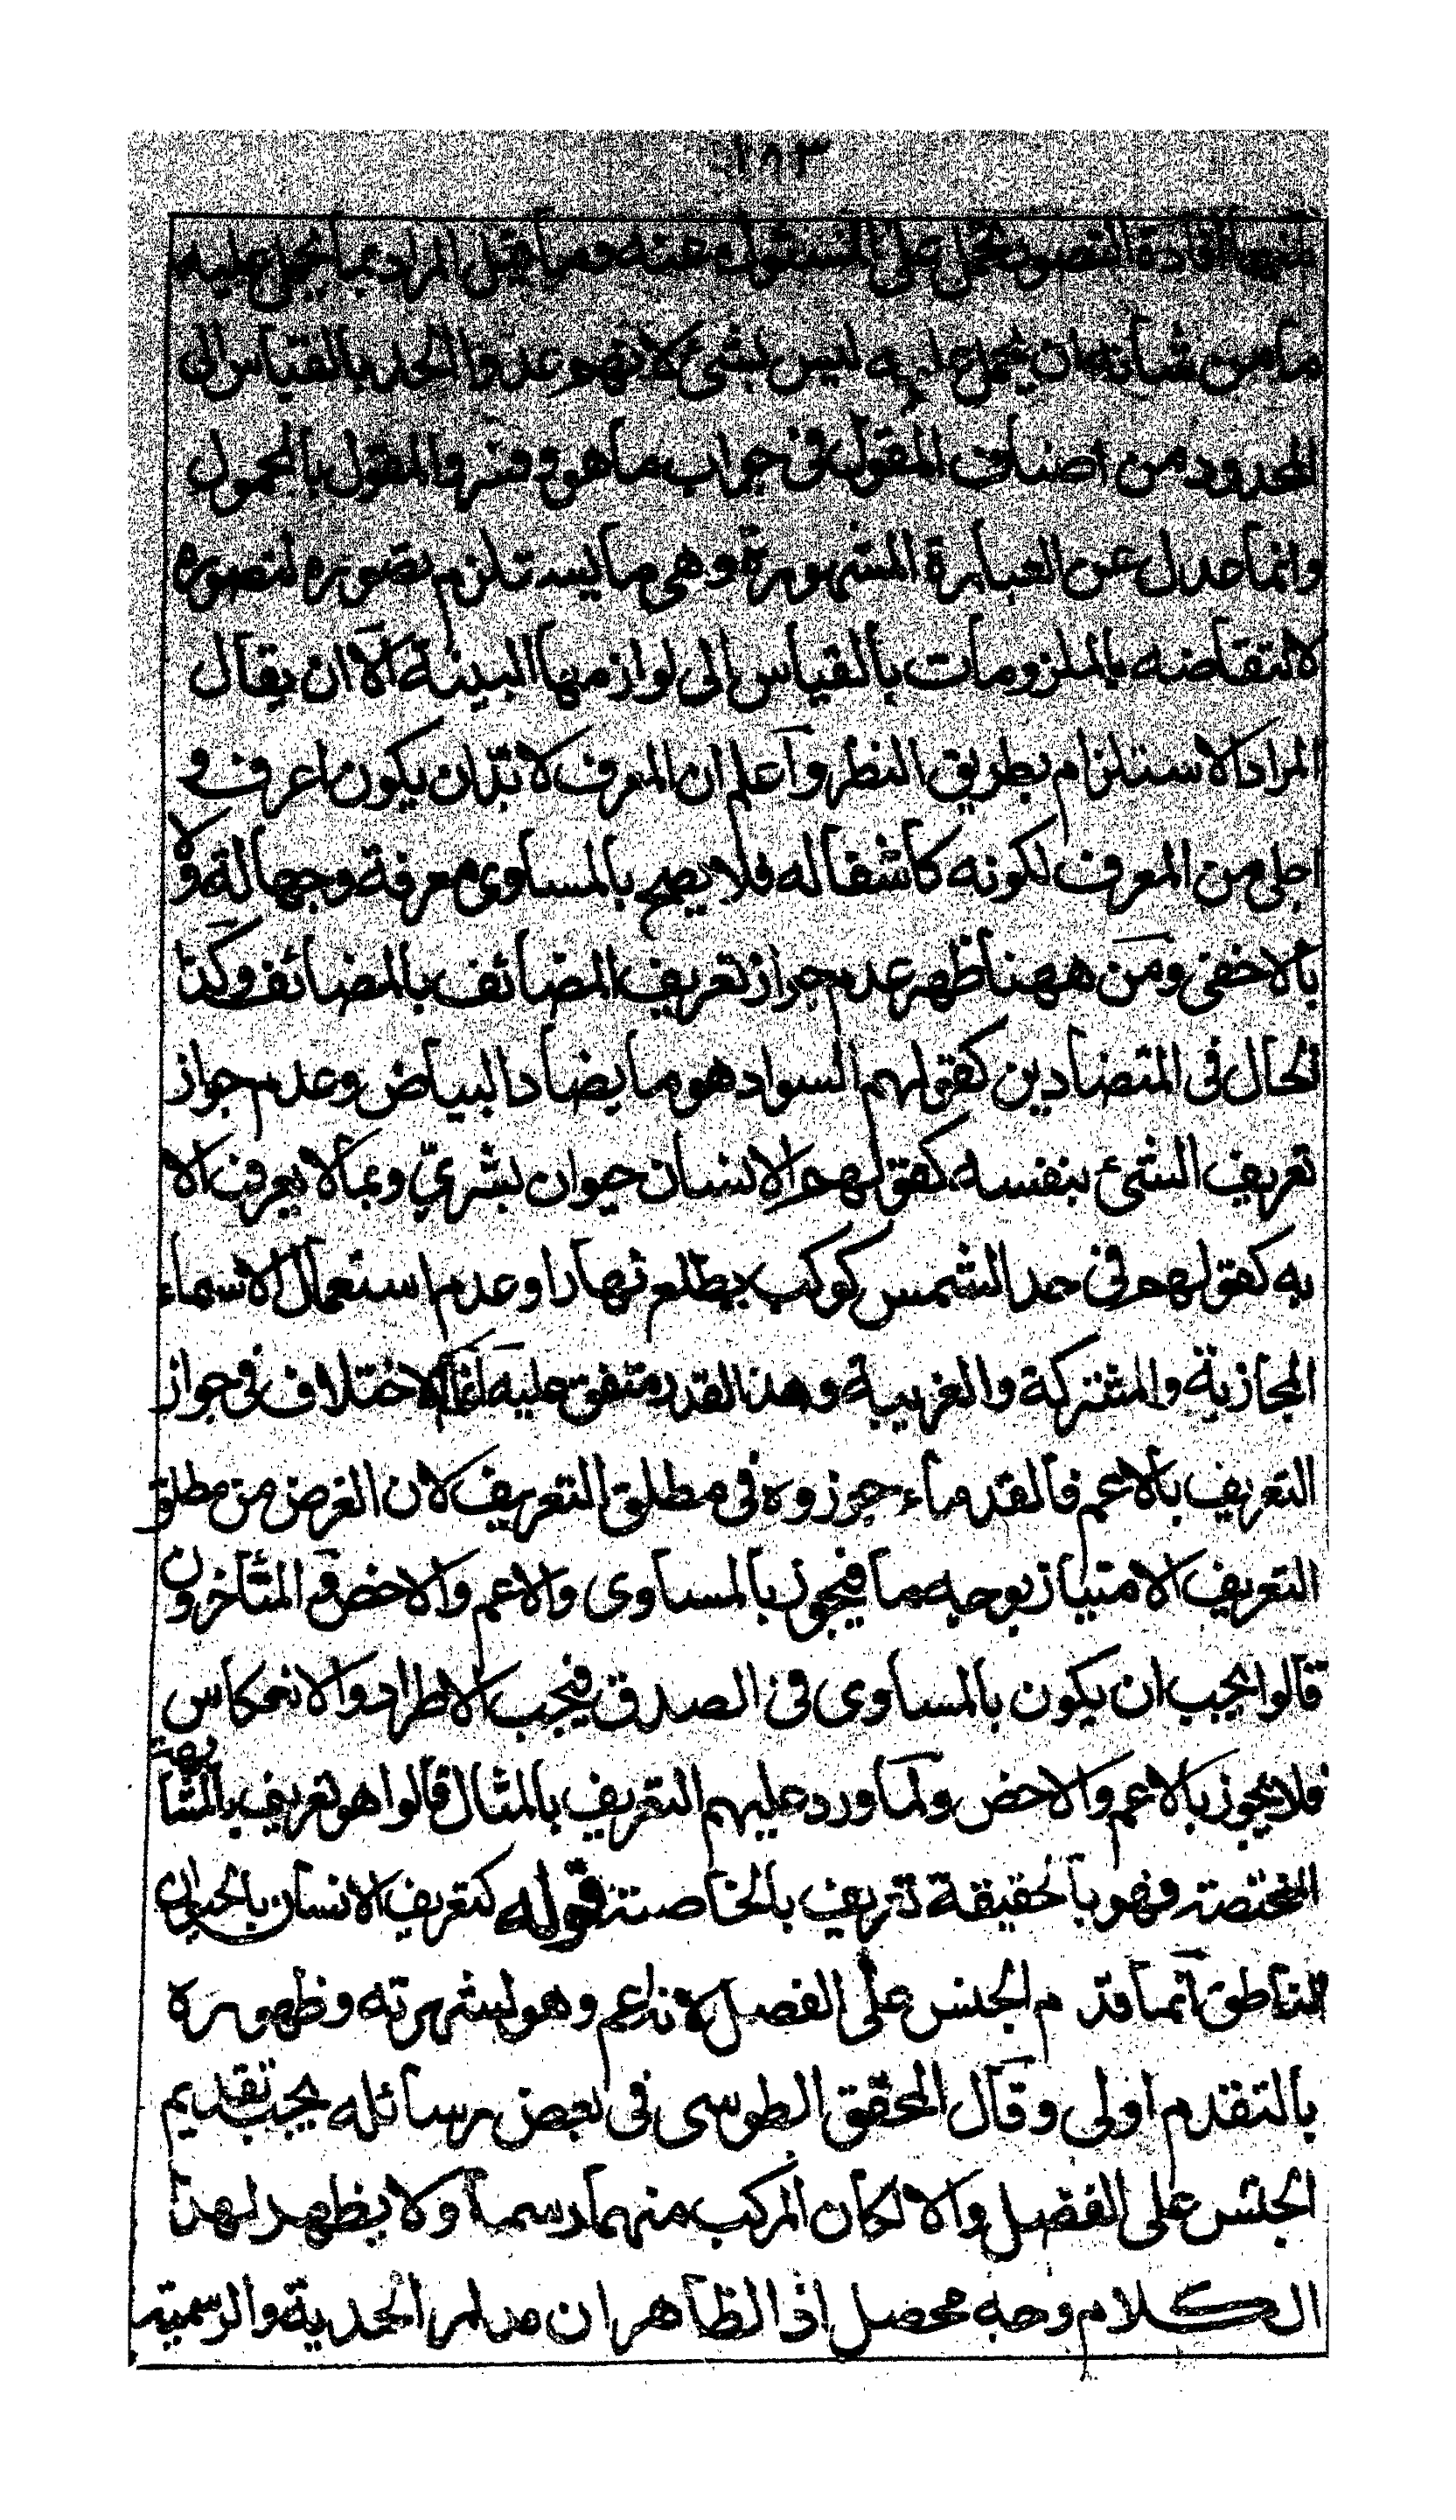 ١٨٣
منها افادة التصور يحمل على المسئول عنه وما قيل المراد بما يحمل عليه
ما من شأنه ان يحمل عليه ليس بشئ لانهم عدوا الحد بالقياس الى
المحدود من اصناف المقول فى جواب ما هو وفسروا المقول بالمحمول
وانما عدل عن العبارة المشهورة وهى ما يستلزم تصوره لتصوره
لانتقاضه بالملزومات بالقياس الى لوازمها البينة الا ان يقال
المراد الاستلزام بطريق النظر واعلم ان المعرف لا بد ان يكون اعرف و
اجلى من المعرف لكونه كاشفا له فلا يصح بالمساوى معرفة وجهالة ولا
بالاخفى ومن ههنا ظهر عدم جواز تعريف المضائف بالمضائف وكذا
الحال فى المتضادين كقولهم السواد هو ما يضاد البياض وعدم جواز
تعريف الشئ بنفسه كقولهم الانسان حيوان بشرىّ وبما لا يعرف الا
به كقولهم فى حد الشمس كوكب يطلع نهارا وعدم استعمال الاسماء
المجازية والمشتركة والغريبة وهذا القدر متفق عليه انما الاختلاف فى جواز
التعريف بالاعم فالقدماء جوزوه فى مطلق التعريف لان الغرض من مطلق
التعريف الامتياز بوجه ما فيجوز بالمساوى والاعم والاخص والمتأخرون
قالوا يجب ان يكون بالمساوى فى الصدق فيجب الاطراد والانعكاس
فلا يجوز بالاعم والاخص ولما ورد عليهم التعريف بالمثال قالوا هو تعريف بالمشابهة
المختصة فهو بالحقيقة تعريف بالخاصة قوله كتعريف الانسان بالحيوان
الناطق انما قدم الجنس على الفصل لانه اعم وهو لشهرته وظهوره
بالتقدم اولى وقال المحقق الطوسى فى بعض رسائله يجب تقديم
الجنس على الفصل والا لكان المركب منهما رسما ولا يظهر لهذا
الكلام وجه محصل اذ الظاهر ان مدار الحدية والرسمية